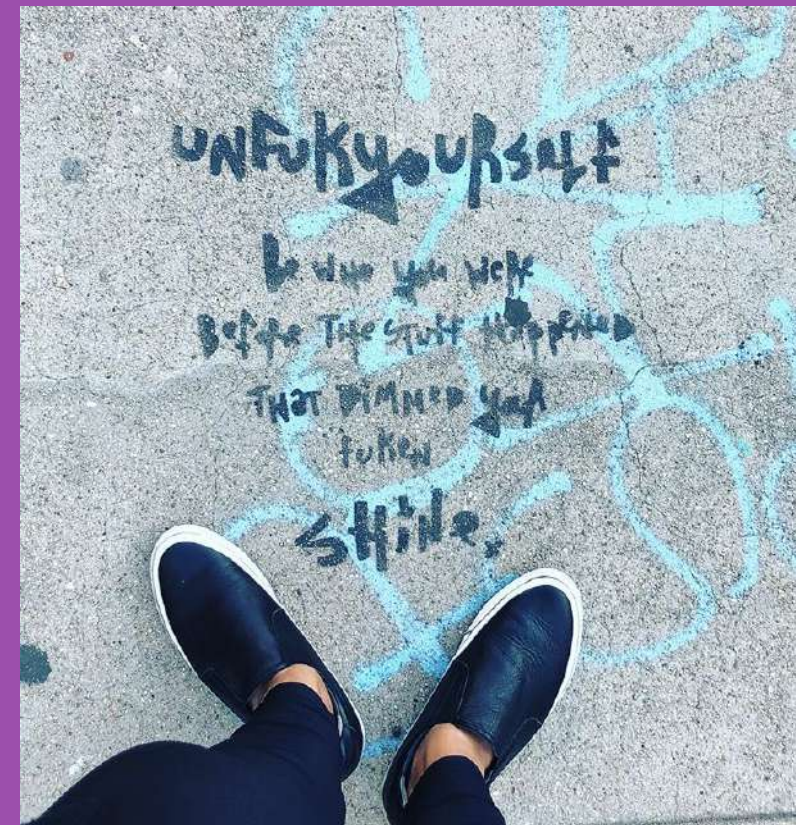 UNFUKyoURSELF
be who you weRe
BefoRe THe STuff HAppeNeD
THAT DiMMeD youR
fuKeN
SHiNe.